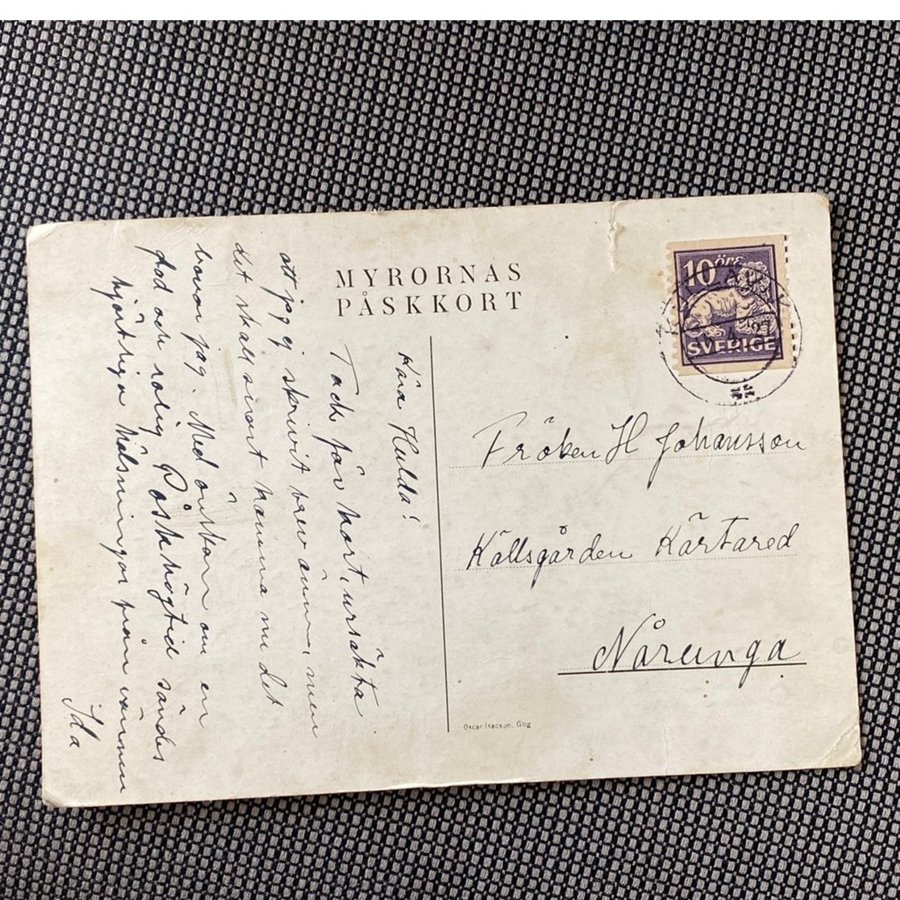 MYRORNAS
PÅSKKORT
10 ÖRE
SVERIGE
Kära Hulda!
Tack för kort, ursäkta
att jag ej skrivit brev ännu, men
det skall snart hamna nu det
lovar jag. Med önskan om en
glad och rolig Påskhögtid sändes
hjärtliga hälsningar från vännen
Ida
Fröken H Johansson
Källsgården Kärtared
Nårunga
Oscar Isacson. Gbg